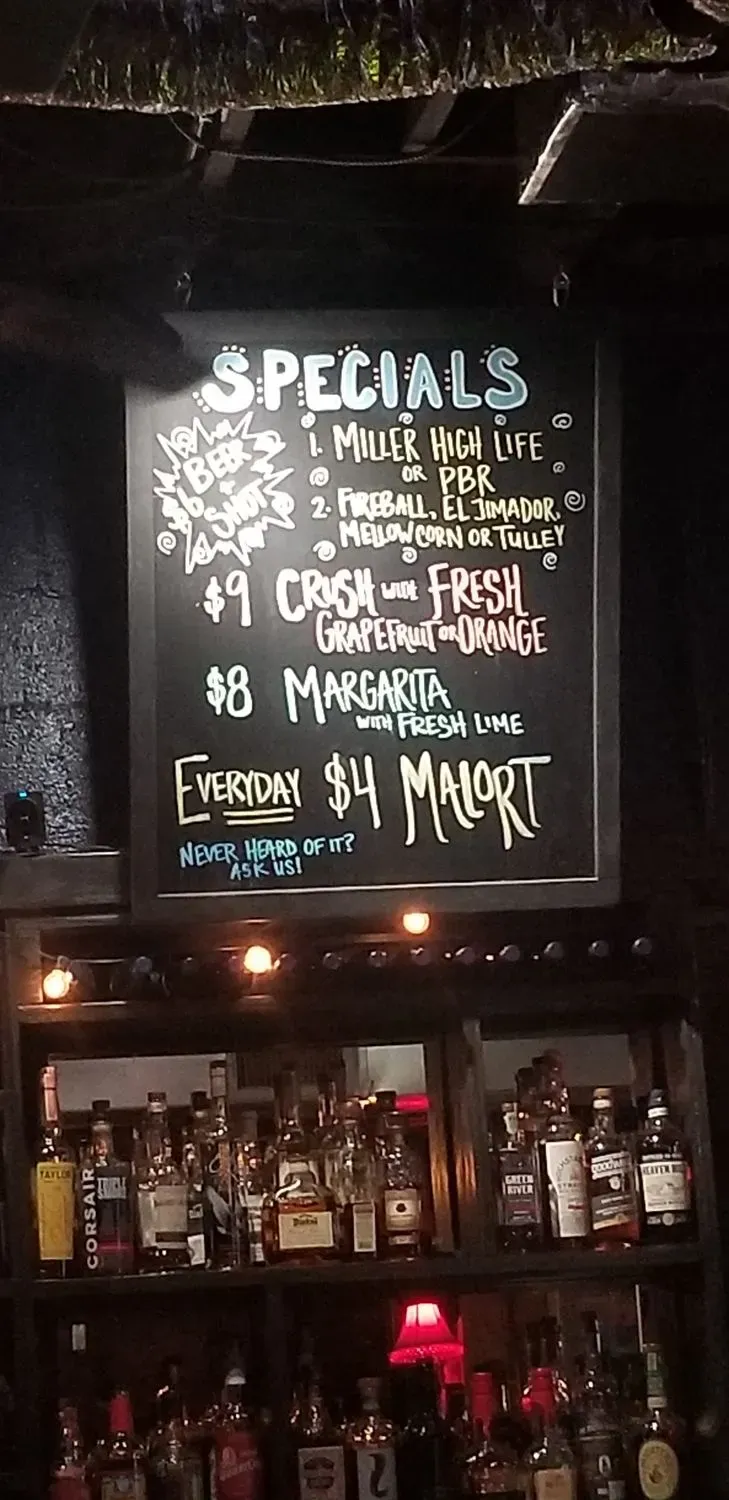 SPECIALS
$6 BEER + SHOT
1. MILLER HIGH LIFE
OR PBR
2. FIREBALL, EL JIMADOR,
MELLOWCORN OR TULLEY
$9 CRUSH WITH FRESH
GRAPEFRUIT OR ORANGE
$8 MARGARITA
WITH FRESH LIME
EVERYDAY $4 MALORT
NEVER HEARD OF IT?
ASK US!
TAYLOR
CORSAIR
TRIPLE
SMOKE
GREEN
RIVER
HEAVEN HILL